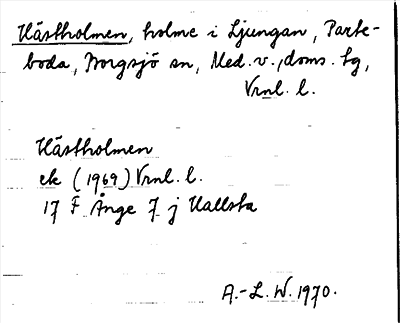 Hästholmen, holme i Ljungan, Parte-
boda, Borgsjö sn, Med. v., doms. hg,
Vrnl. l.
Hästholmen
ek (1969) Vrnl. l.
17 F Ånge 7 j Hallsta
A.-L. W. 1970.